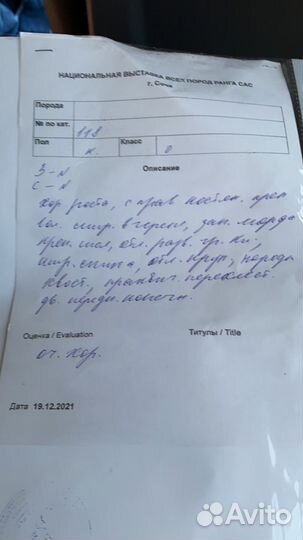 НАЦИОНАЛЬНАЯ ВЫСТАВКА ВСЕХ ПОРОД РАНГА САС
г. Сочи
Порода
№ по кат. 118
Пол К. Класс О
Описание
З - N
С - N
хор роста, с прав постан.
шир. в череп, зап. морда
креп. шея, отл. разв. гр. кл.,
шир. спина, отл. круп,
хвост,
дв. передн. конечн.
Оценка / Evaluation Титулы / Title
оч. хор.
Дата 19.12.2021
Avito